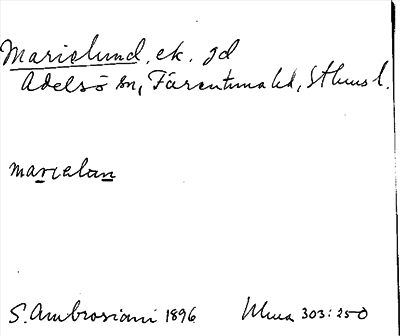 Marielund, ek. jd
Adelsö sn, Färentuna hd, Sthms l.
marielun
S. Ambrosiani 1896 303:250